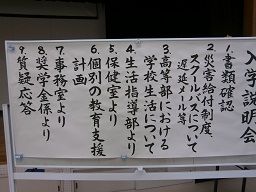 入学説明会
1.書類確認
2.災害給付制度、
スクールバスについて
遅延メール等
3.高等部における
学校生活について
4.生活指導部より
5.保健室より
6.個別の教育支援
計画
7.事務室より
8.奨学金係より
9.質疑応答